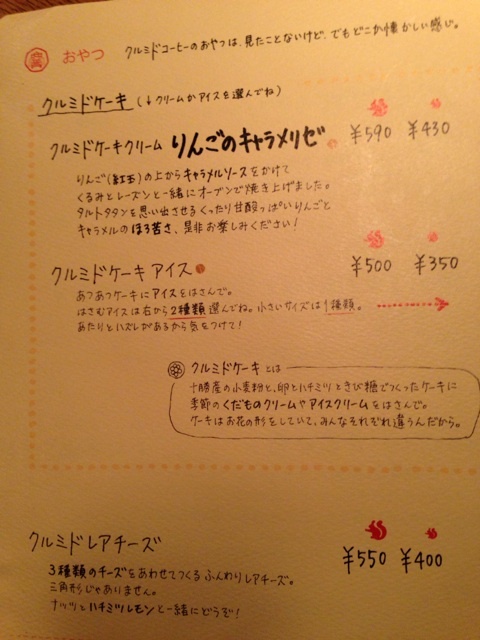 おやつ クルミドコーヒーのおやつは、見たことないけど、でもどこか懐かしい感じ。
クルミドケーキ (↓クリームかアイスを選んでね)
クルミドケーキクリーム りんごのキャラメリゼ ¥590 ¥430
りんご(紅玉)の上からキャラメルソースをかけて
くるみとレーズンと一緒にオーブンで焼き上げました。
タルトタタンを思い出させるくったり甘酸っぱいりんごと
キャラメルのほろ苦さ、是非お楽しみください!
クルミドケーキ アイス ¥500 ¥350
あつあつケーキにアイスをはさんで。
はさむアイスは右から2種類選んでね。小さいサイズは1種類。
あたりとハズレがあるから気をつけて!
クルミドケーキ とは
十勝産の小麦粉と、卵とハチミツときび糖でつくったケーキに
季節のくだものクリームやアイスクリームをはさんで。
ケーキはお花の形をしていて、みんなそれぞれ違うんだから。
クルミドレアチーズ ¥550 ¥400
3種類のチーズをあわせてつくるふんわりレアチーズ。
三角形じゃありません。
ナッツとハチミツレモンと一緒にどうぞ!